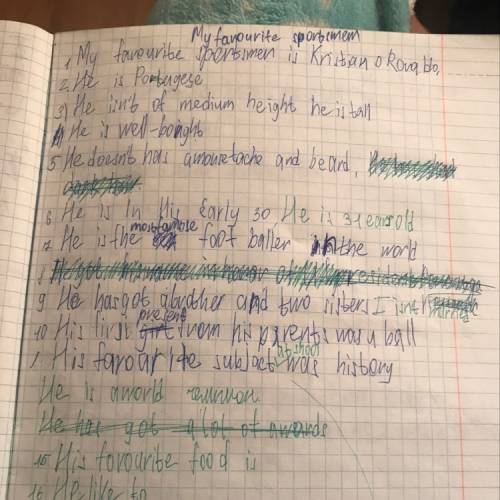 My favourite sportsmen
1 My favourite sportsmen is Kristian o Ronaldo,
2. He is Portugese
3) He isn't of medium height he is tall
4) He is well-bought
5. He doesn't has a mouretache and beard.
6 He is in His early 30 He is 31 earsold
7 He is the most famose foot baller in the world
8 He got in honor of president
9 He hasgot abrother and two sisters I isn't married
10 His first present from his parents was a ball
His favourite subject was history
He is aworld
He has got a lot of awards
15 His favourite food is
16 He like to